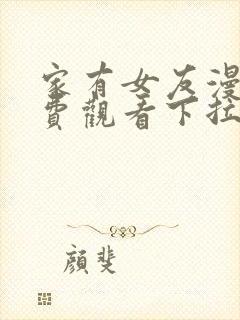 家有女友漫
費觀看下拉
顏斐